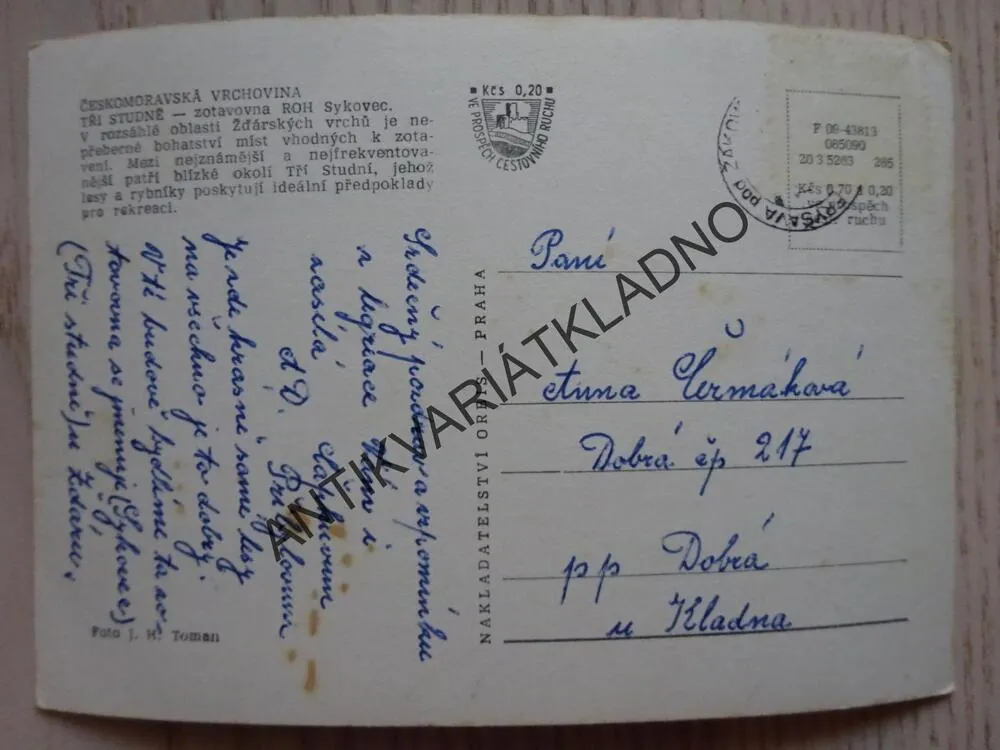 ČESKOMORAVSKÁ VRCHOVINA
TŘI STUDNĚ — zotavovna ROH Sykovec.
V rozsáhlé oblasti Žďárských vrchů je ne-
přeberné bohatství míst vhodných k zota-
vení. Mezi nejznámější a nejfrekventova-
nější patří blízké okolí Tří Studní, jehož
lesy a rybníky poskytují ideální předpoklady
pro rekreaci.
Kčs 0,20
VE PROSPĚCH CESTOVNÍHO RUCHU
F 09-43813
085090
20 3 5263 285
Kčs 0,70 + 0,20
ve prospěch
ruchu
Srdečný pozdrav a vzpomínku
z Vám i
zasílá
Je zde krásně samé lesy
na všechno je to dobrý.
V té budově bydlíme ta zo-
tovovna se jmenuje (Sykovec)
(Tři studně) u Ždaru.
Foto J. H. Toman
NAKLADATELSTVÍ ORBIS — PRAHA
Paní
Anna Čermáková
Dobrá čp 217
pp Dobrá
u Kladna
ANTIKVARIÁTKLADNO